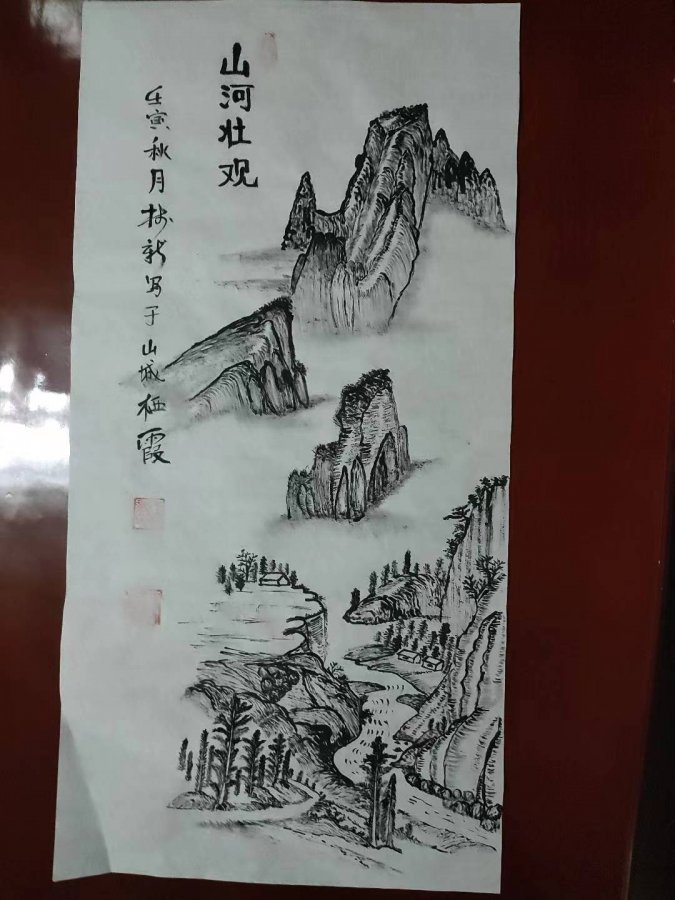 山河壮观
壬寅秋月树新写于山城栖霞